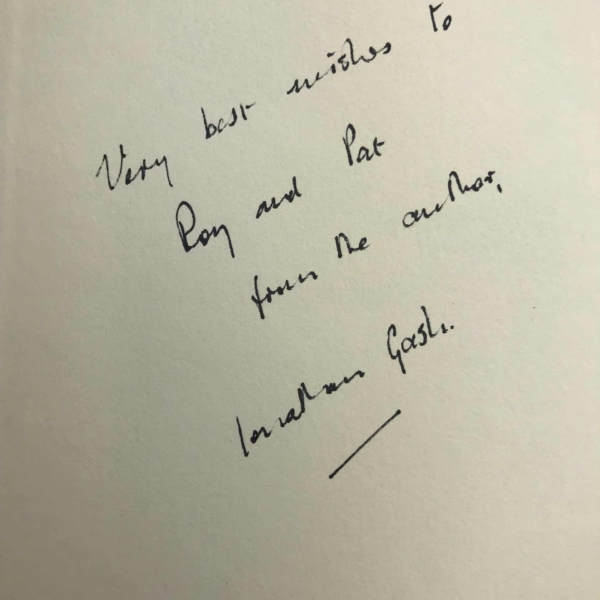 Very best wishes to
Roy and Pat
from the author,
Jonathan Gash.